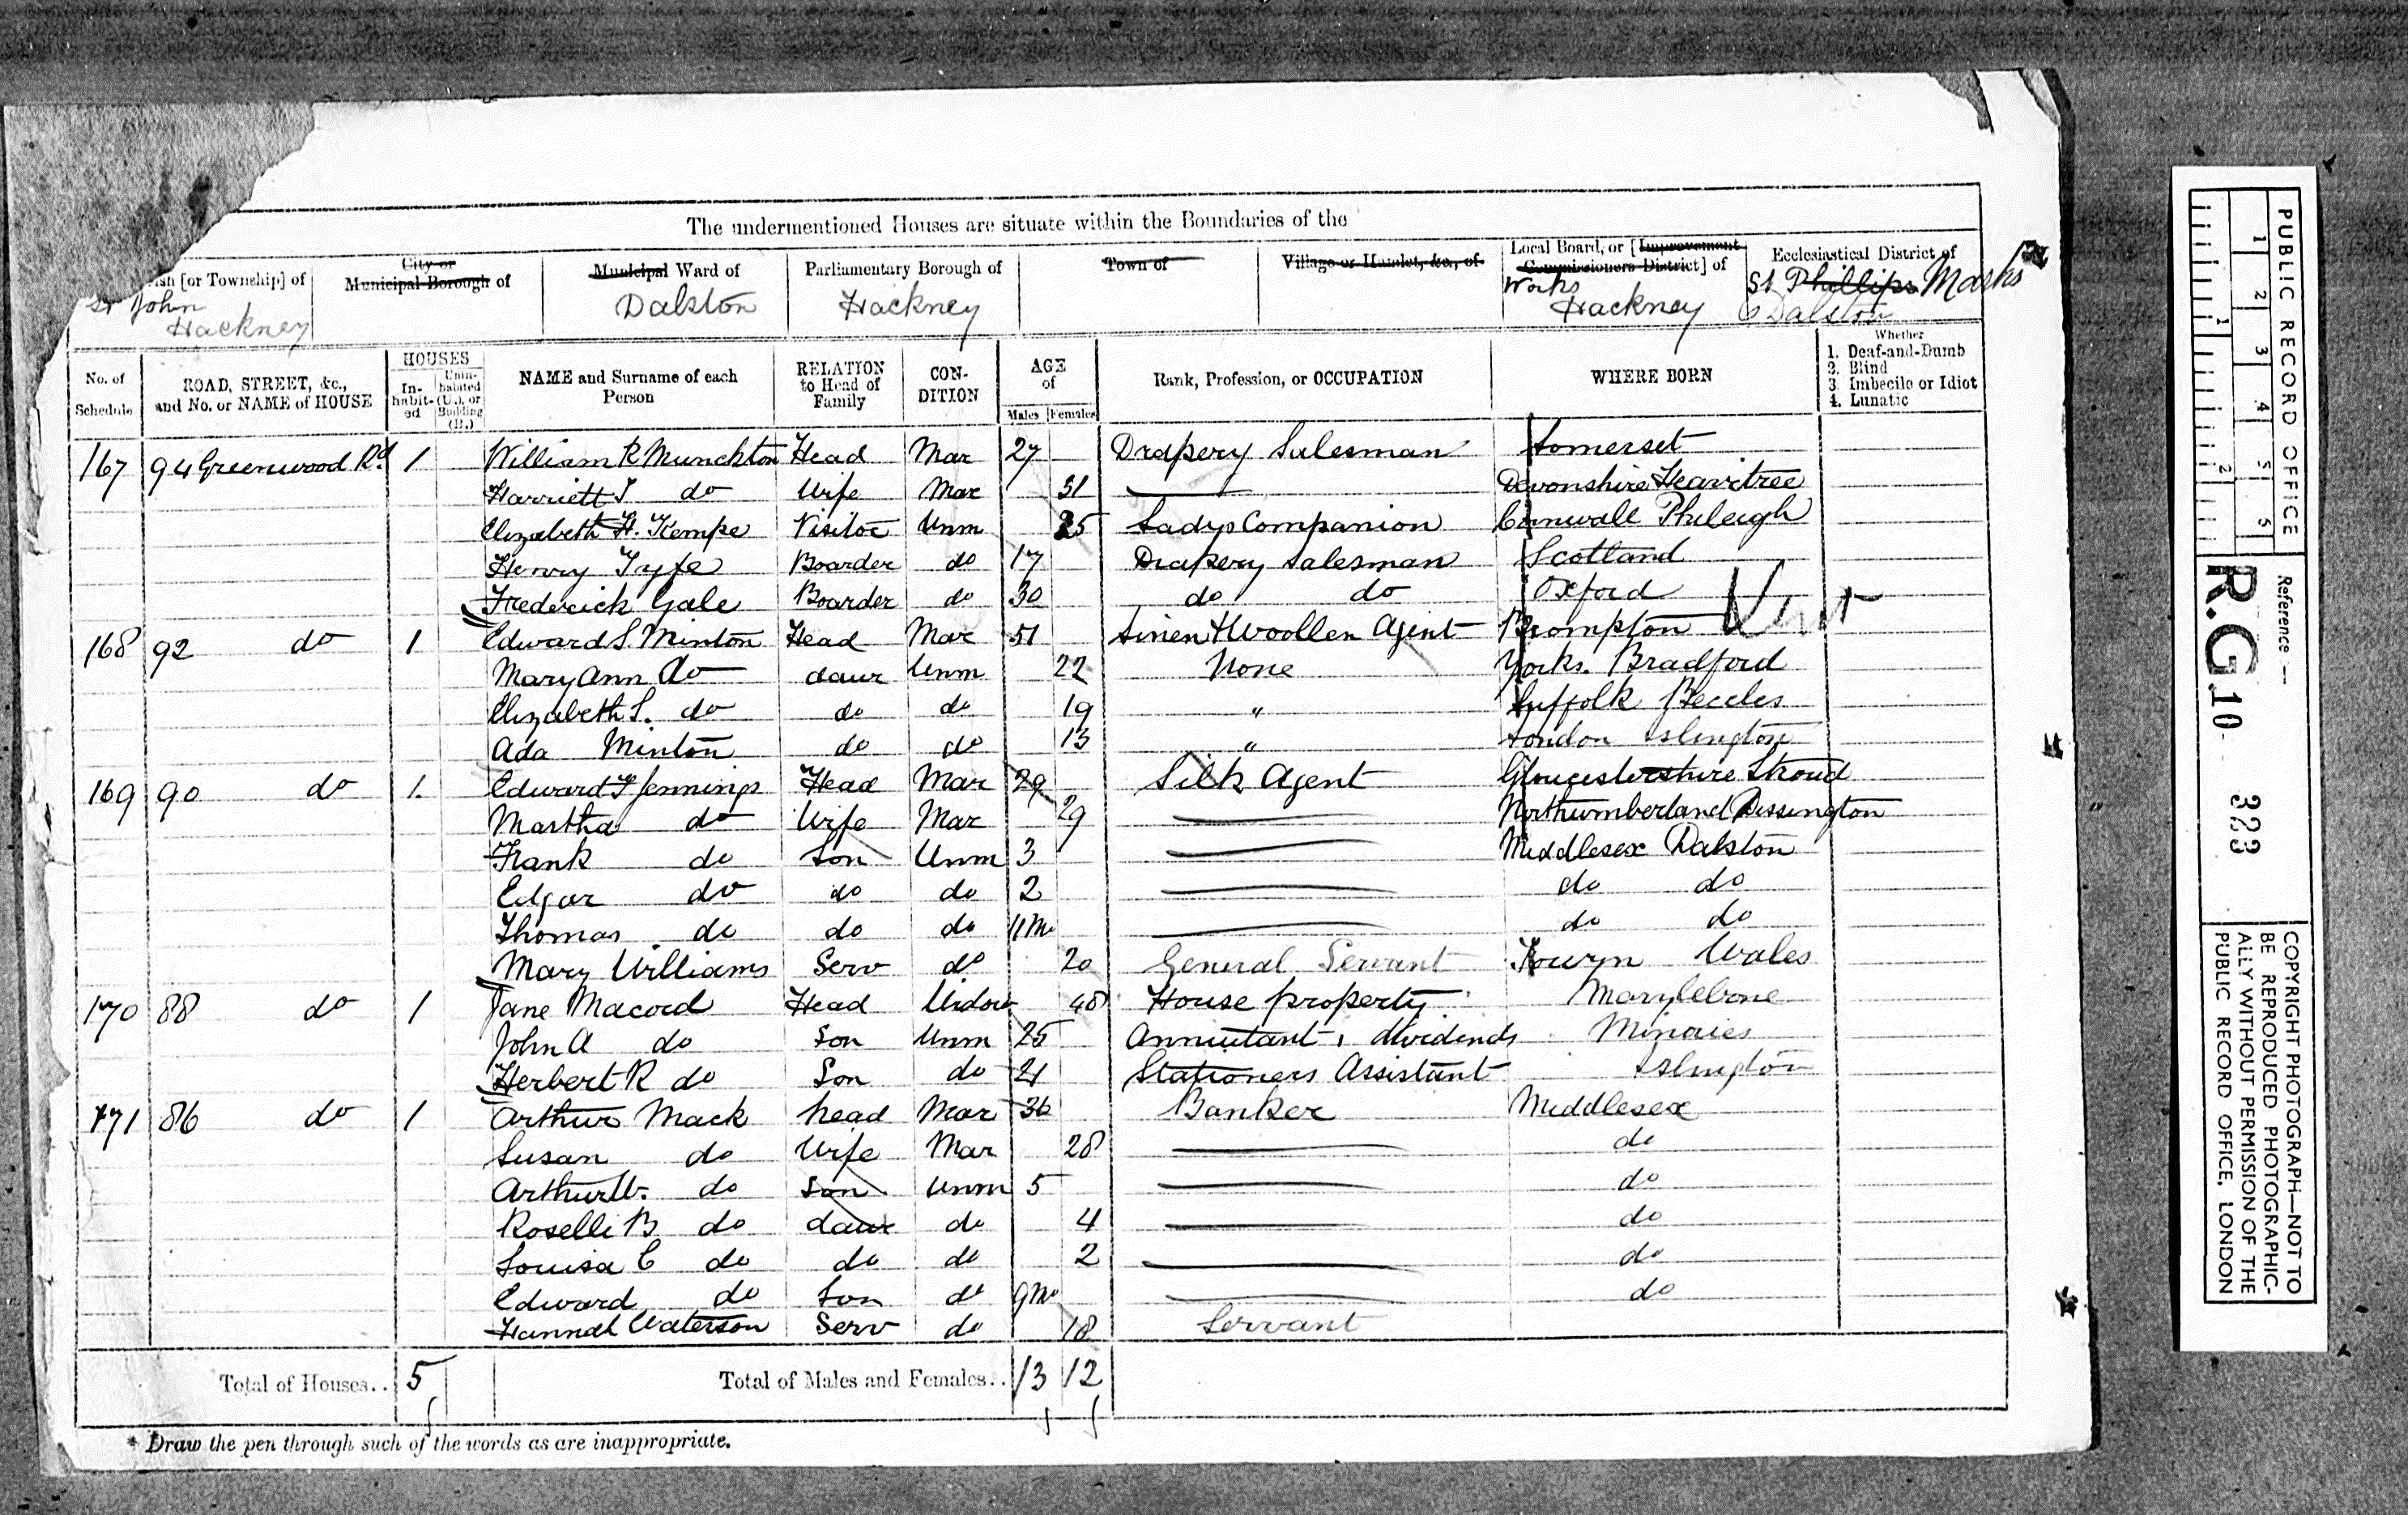 The undermentioned Houses are situate within the Boundaries of the
ish [or Township] of
St John
Hackney
City or Municipal Borough of
Municipal Ward of
Dalston
Parliamentary Borough of
Hackney
Town of
Village or Hamlet, &c., of
Local Board, or [Improvement Commissioners District] of
Works
Hackney
Ecclesiastical District of
St Phillips Marks
Dalston
No. of Schedule
ROAD, STREET, &c., and No. or NAME of HOUSE
HOUSES
In-habit-ed
Unin-habited (U.), or Building (B.)
NAME and Surname of each Person
RELATION to Head of Family
CON-DITION
AGE of
Males
Females
Rank, Profession, or OCCUPATION
WHERE BORN
Whether
1. Deaf-and-Dumb
2. Blind
3. Imbecile or Idiot
4. Lunatic
167 94 Greenwood Rd 1 William R Munckton Head Mar 27 Drapery Salesman Somerset
Harriett J do Wife Mar 31 Devonshire Heavitree
Elizabeth H. Kempe Visitor Unm 25 Ladys Companion Cornwall Phileigh
Henry Fyfe Boarder do 17 Drapery Salesman Scotland
Frederick Gale Boarder do 30 do do Oxford
168 92 do 1 Edward S Minton Head Mar 51 Linen & Woollen Agent Brompton Kent
Mary Ann do daur Unm 22 None Yorks. Bradford
Elizabeth S. do do do 19 " Suffolk Beccles
Ada Minton do do 13 " London Islington
169 90 do 1. Edward F Jennings Head Mar 29 Silk Agent Gloucestershire Stroud
Martha do Wife Mar 29 Northumberland Dissington
Frank do Son Unm 3 Middlesex Dalston
Edgar do do do 2 do do
Thomas do do do 11 Mo do do
Mary Williams Serv do 20 General Servant Towyn Wales
170 88 do 1 Jane Macord Head Widow 48 House property Marylebone
John A do Son Unm 25 Annuitant, dividends Minories
Herbert R do Son do 21 Stationers Assistant Islington
171 86 do 1 Arthur Mack head Mar 36 Banker Middlesex
Susan do Wife Mar 28 do
Arthur W. do Son Unm 5 do
Roselli B do daur do 4 do
Louisa C do do do 2 do
Edward do Son do 9 Mo do
Hannah Waterson Serv do 18 Servant
Total of Houses.. 5 Total of Males and Females.. 13 12
* Draw the pen through such of the words as are inappropriate.
PUBLIC RECORD OFFICE
1 2 3 4 5
1 2
Reference :—
R.G. 10 323
COPYRIGHT PHOTOGRAPH—NOT TO
BE REPRODUCED PHOTOGRAPHIC-
ALLY WITHOUT PERMISSION OF THE
PUBLIC RECORD OFFICE, LONDON